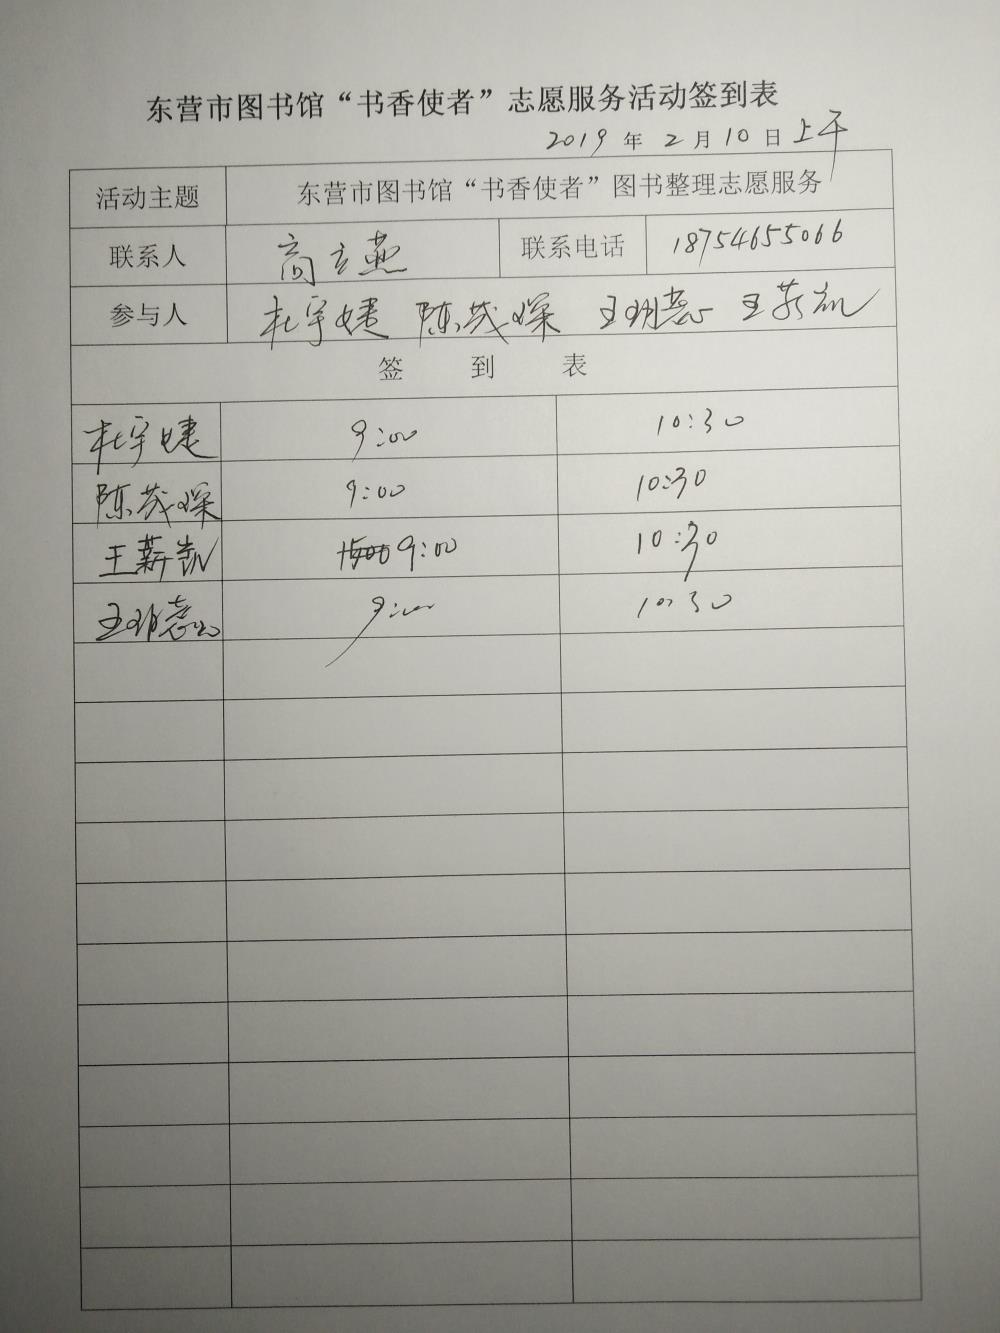 东营市图书馆“书香使者”志愿服务活动签到表
2019 年 2 月 10 日 上午
活动主题 东营市图书馆“书香使者”图书整理志愿服务
联系人 高立燕 联系电话 18754655066
参与人 杜宇婕 陈茂琛 王玥蕊 王薪凯
签 到 表
杜宇婕 9:00 10:30
陈茂琛 9:00 10:30
王薪凯 9:00 10:30
王玥蕊 9:00 10:30